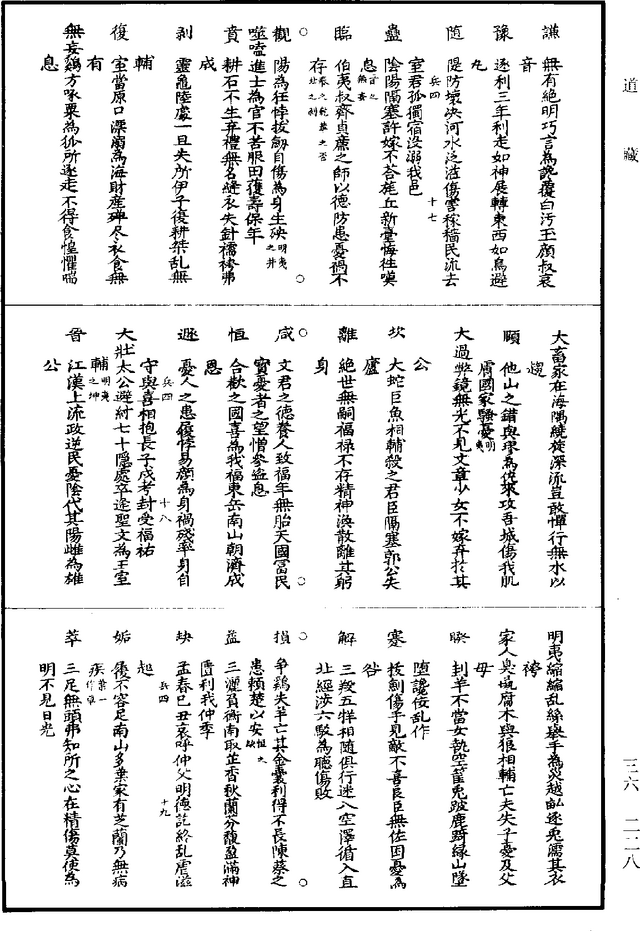 道藏
謙 無有絕明巧言為讒覆白污玉顏叔哀
音
豫 逐利三年利走如神展轉東西如鳥避
丸
隨 隄防壞決河水泛溢傷害稼穡民流去
兵四 十七
室君孤獨宿沒溺我邑
蠱 陰陽隔塞許嫁不荅旄丘新臺悔往嘆
息
臨 伯夷叔齊貞廉之師以德防患憂禍不
存
觀 陽為任悖拔劒自傷為身生殃 明夷之井
噬嗑 進士為官不苦服田獲壽保年
賁 耕石不生弃禮無名縫衣失針襦袴弗
成
剥 靈龜陸處一旦失所伊子復耕桀乱無
輔
復 室當原口深溺為海財産殫尽衣食無
有
無妄 鷄方啄粟為狐所逐走不得食惶懼喘
息
大畜 家在海隅繞旋深流豈敢憚行無水以
頤 他山之錯與璆為仇來攻吾城傷我肌
膚國家騷憂
大過 弊鏡無光不見文章少女不嫁弃於其
公
坎 大蛇巨魚相輔殺之君臣隔塞郭公失
廬
離 絕世無嗣福祿不存精神渙散離其躬
身
咸 文君之德養人致福年無胎夭國富民
實憂者之望憎參盜息
恒 合歡之國喜為我福東岳南山朝濟成
恩
遯 憂人之患履悖易顏為身禍殘率身自
兵四 十八
守與喜相抱長子成考封受福祐
大壯 太公避紂七十隱處卒逢聖文為王室
輔 明夷之坤
晉 江漢上流政逆民憂陰代其陽雌為雄
公
明夷 縮緒乱絲舉手為災越畝逐兎濡其衣
袴
家人 與腐木與狼相輔亡夫失子憂及父
母
睽 刲羊不當女執空筐兎跛鹿踦緣山墜
墮讒佞乱作
蹇 枝劍傷手見敵不喜良臣無佐困憂為
咎
解 三羖五牂相隨俱行迷入空澤循入直
北經涉六駮為聽傷敗
損 争鷄失羊亡其金囊利得不長陳蔡之
患賴楚以安
益 三灑負衡南取芷香秋蘭芬馥盈滿神
匱利我仲季
兵四 十九
夬 孟春己丑哀呼仲父明德訖終乱虐滋
起
姤 瘦不容足南山多葉家有芝蘭乃無病
疾
萃 三足無頭弗知所之心在精傷莫使為
明不見日光
三六 二二八